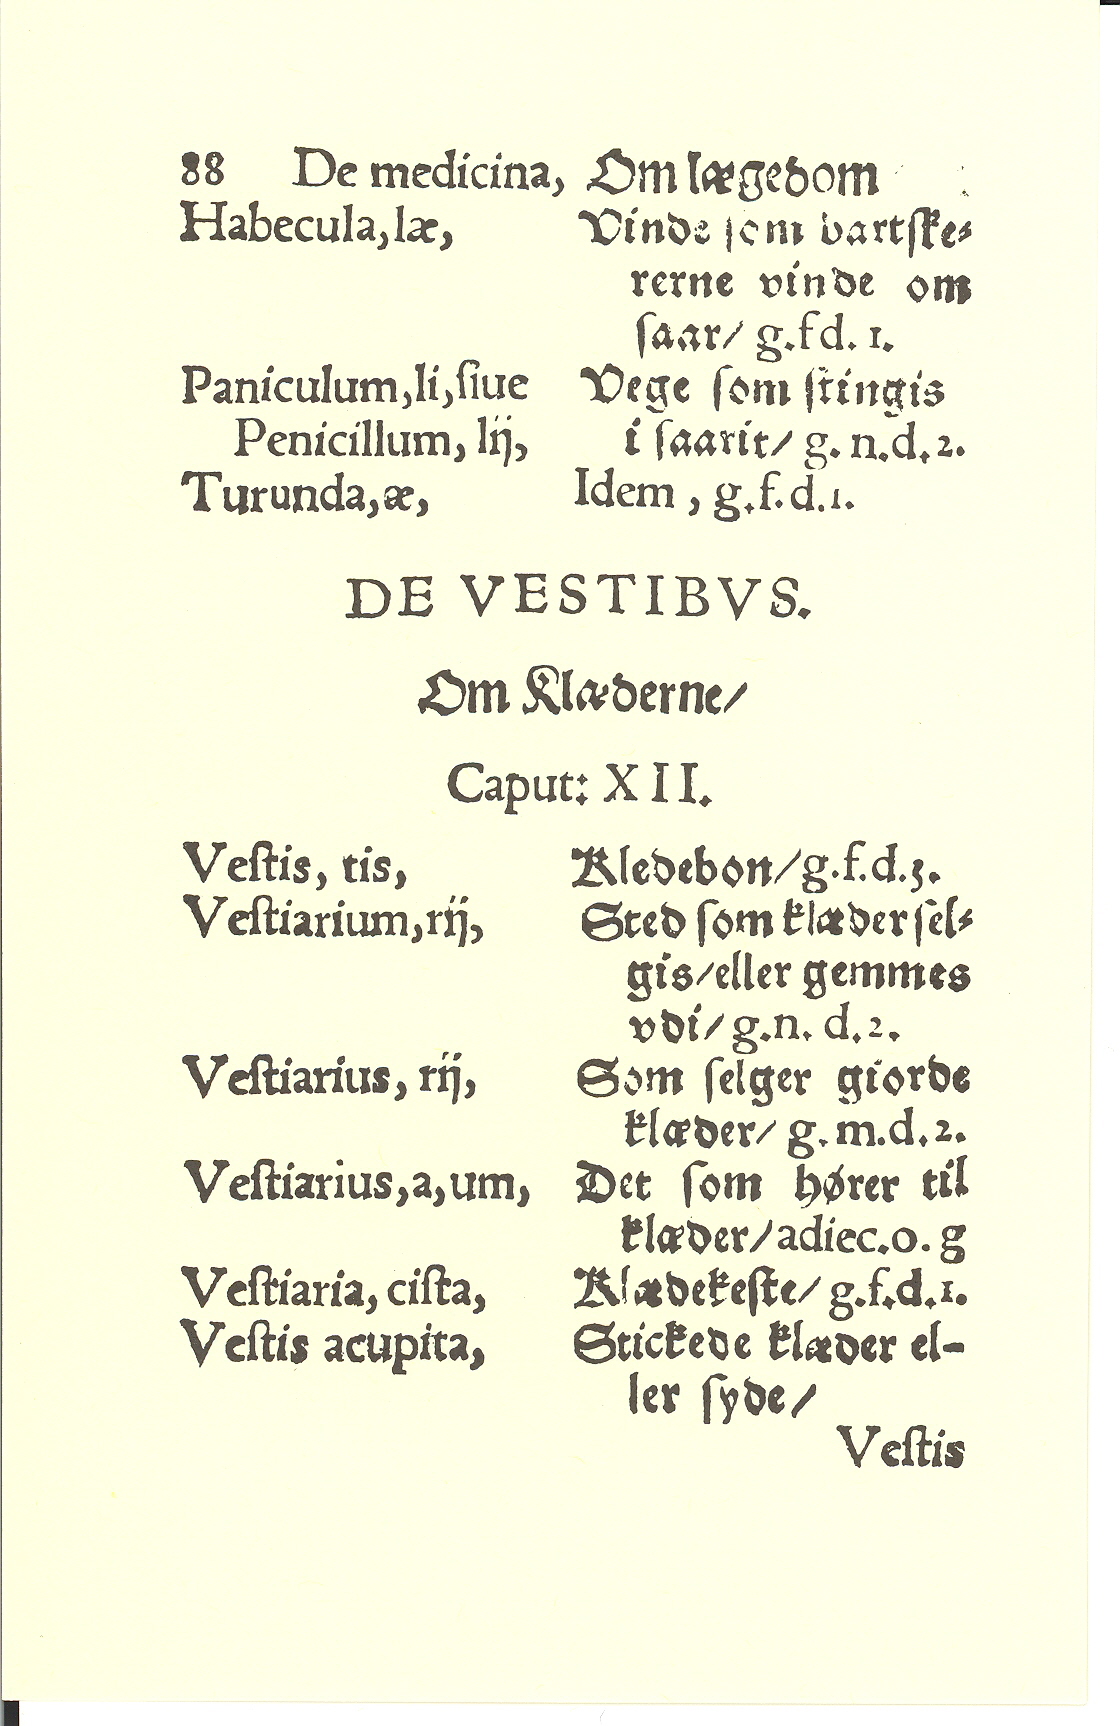 88 De medicina, Om lægedom
Habecula, læ, Vinde som bartſke⸗
rerne vinde om
ſaar/ g.fd. 1.
Paniculum, li, ſiue Vege ſom ſtingis
Penicillum, lij, i ſaarit/ g. n.d. 2.
Turunda, æ, Idem, g.f.d.1.
DE VESTIBVS.
Om Klæderne/
Caput: XII.
Veſtis, tis, Kledebon/ g.f.d.3.
Veſtiarium, rij, Sted ſom klæder ſel⸗
gis/ eller gemmes
vdi/ g.n. d.2.
Veſtiarius, rij, Som ſelger giorde
klæder/ g. m.d.2.
Veſtiarius, a, um, Det ſom hører til
klæder/ adiec.o. g
Veſtiaria, ciſta, Klædekeſte/ g.f.d.1.
Veſtis acupita, Stickede klæder el-
ler ſyde/
Veſtis